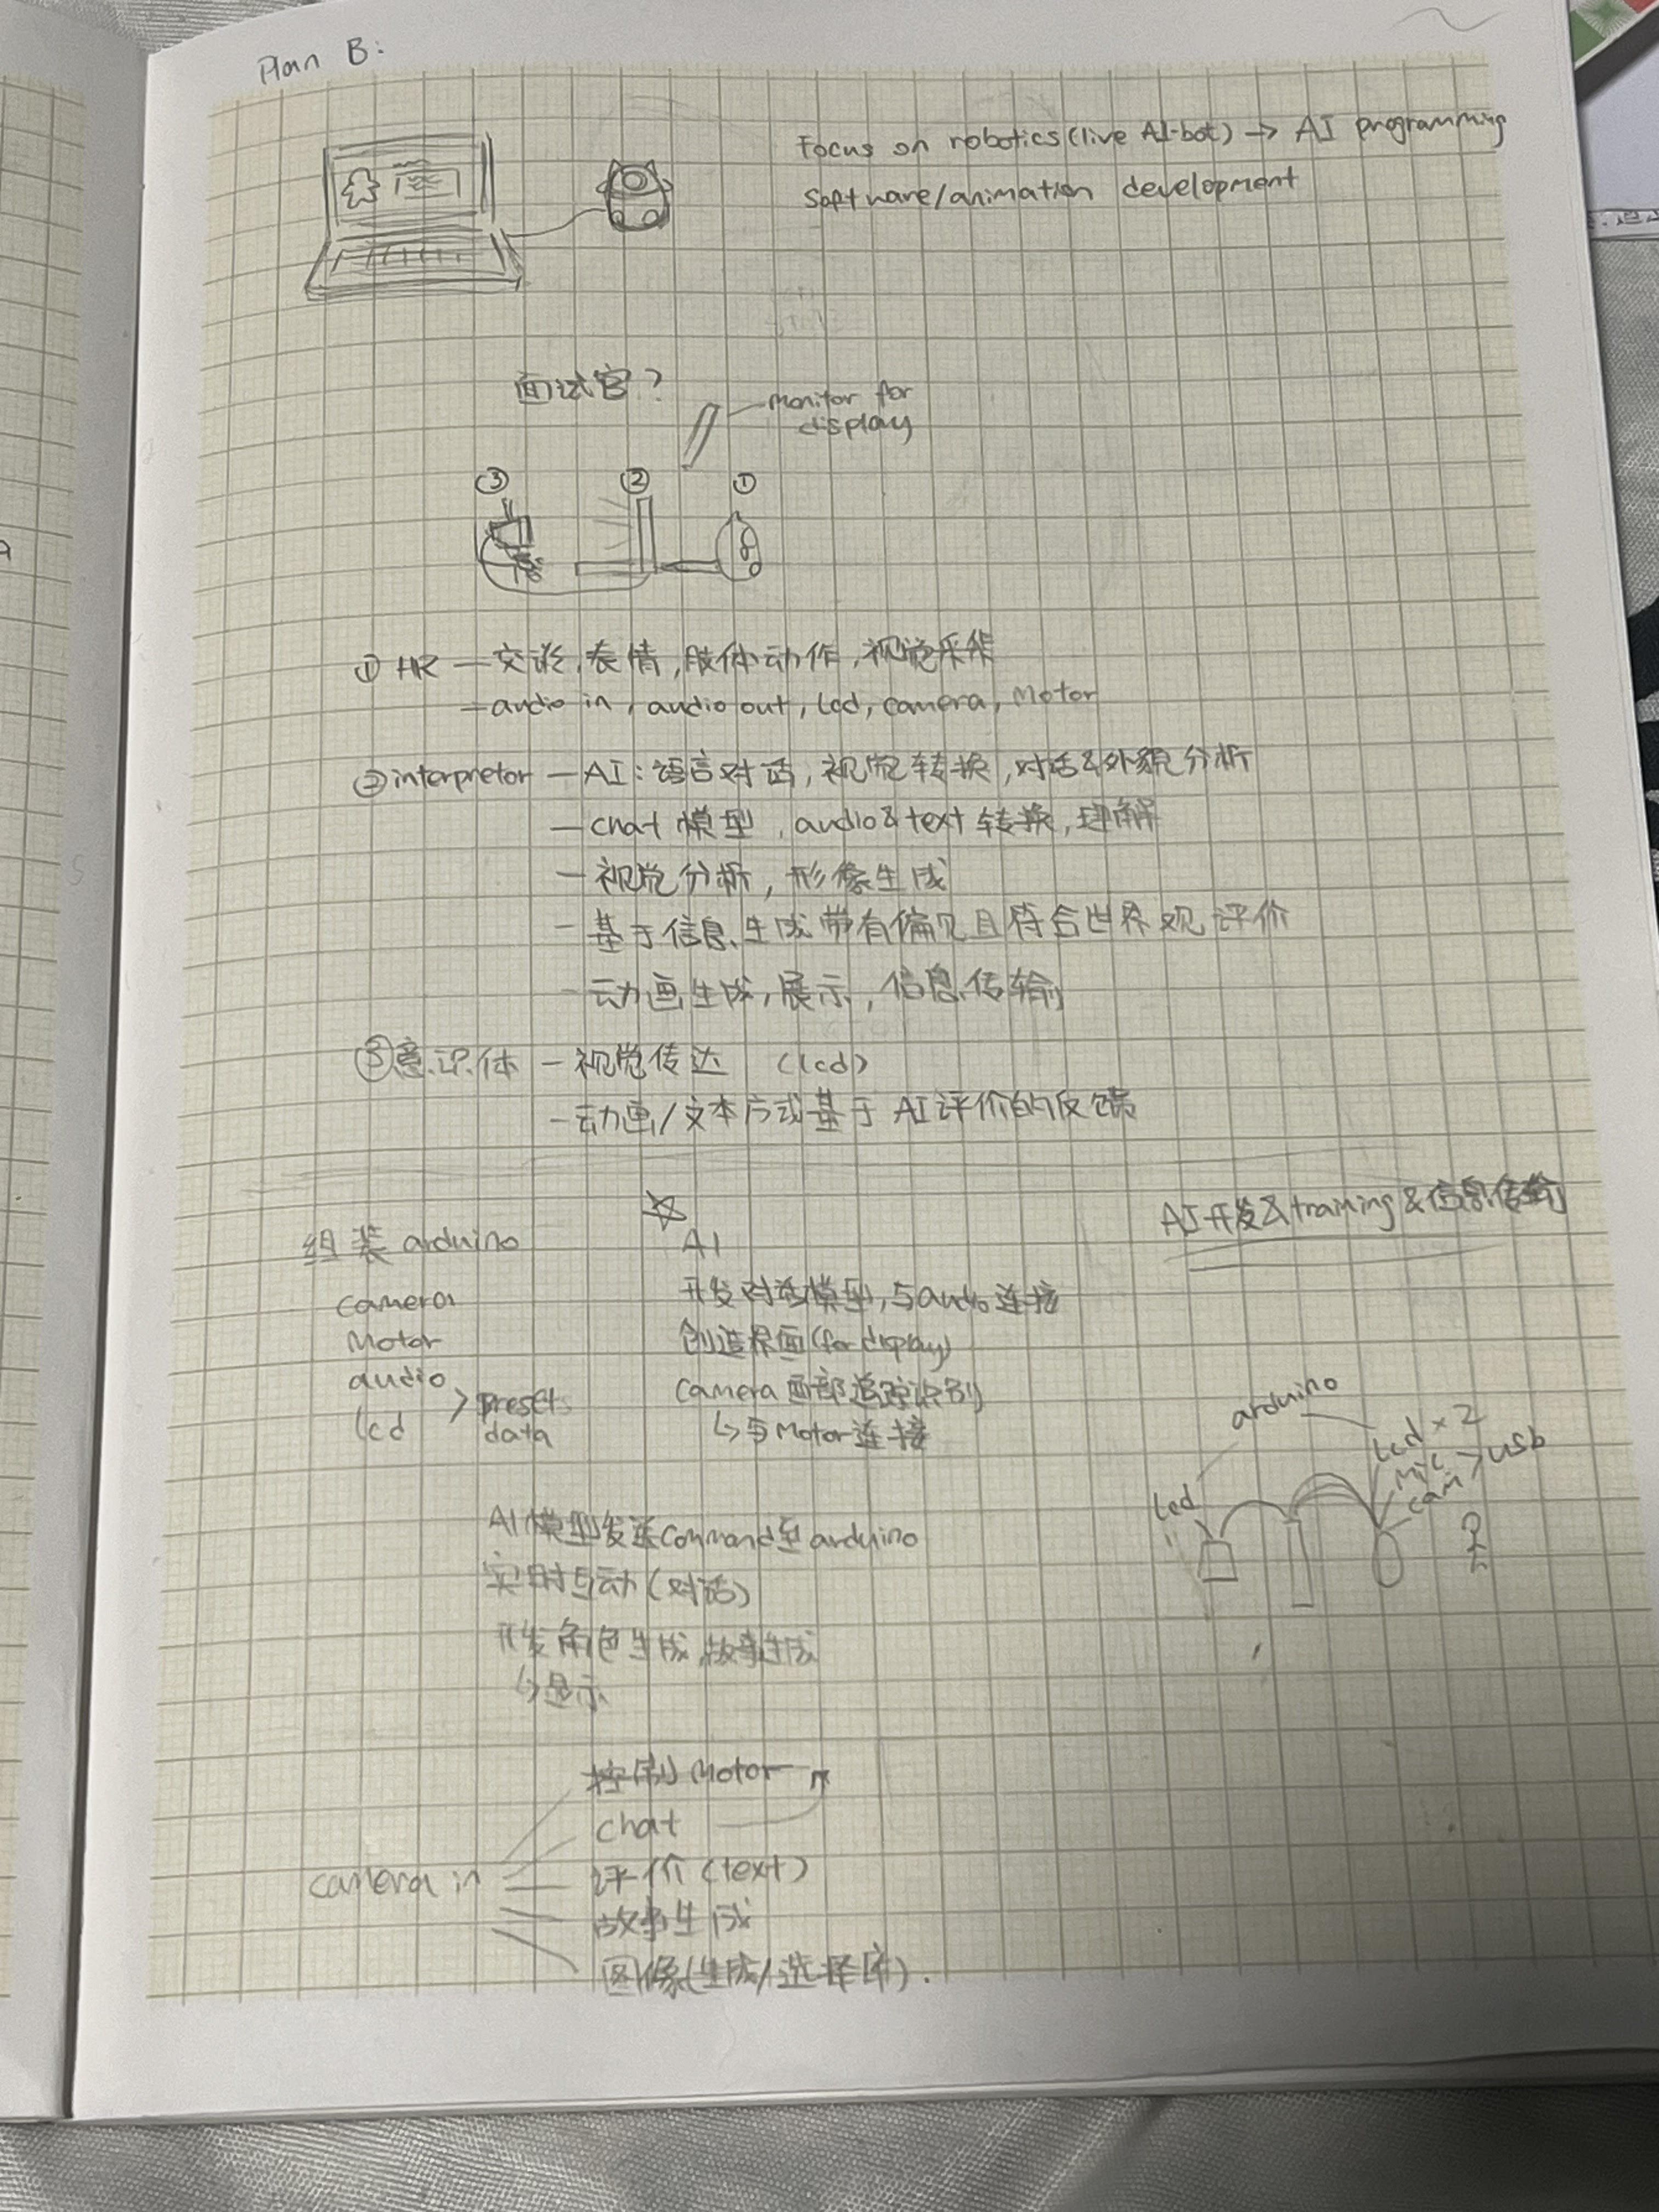 Plan B:
Focus on robotics(live AI-bot) → AI programming
software/animation development
面试官?
monitor for
display
③ ② ①
① HR — 交谈,表情,肢体动作,视觉采集
— audio in, audio out, lcd, camera, Motor
② interpretor — AI:语言对话,视觉转换,对话&外貌分析
— chat 模型, audio&text 转换,理解
— 视觉分析,形像生成
— 基于信息、生成带有偏见且符合世界观评价
— 动画生成,展示,信息传输
③ 意识体 — 视觉传达 (lcd)
— 动画/文本方式基于AI评价的反馈
AI开发&training&信息传输
组装 arduino
camera
Motor
audio
lcd
> presets
data
☆
AI
开发对话模型,与audio连接
创造界面(for display)
Camera 面部追踪识别
↳ 与Motor连接
arduino
lcd × 2
mic
cam
> usb
lcd
AI模型发送Command至arduino
实时互动(对话)
开发角色生成,故事生成
↳ 显示
控制 Motor
chat
camera in
评价 (text)
故事生成
图像(生成/选择库).